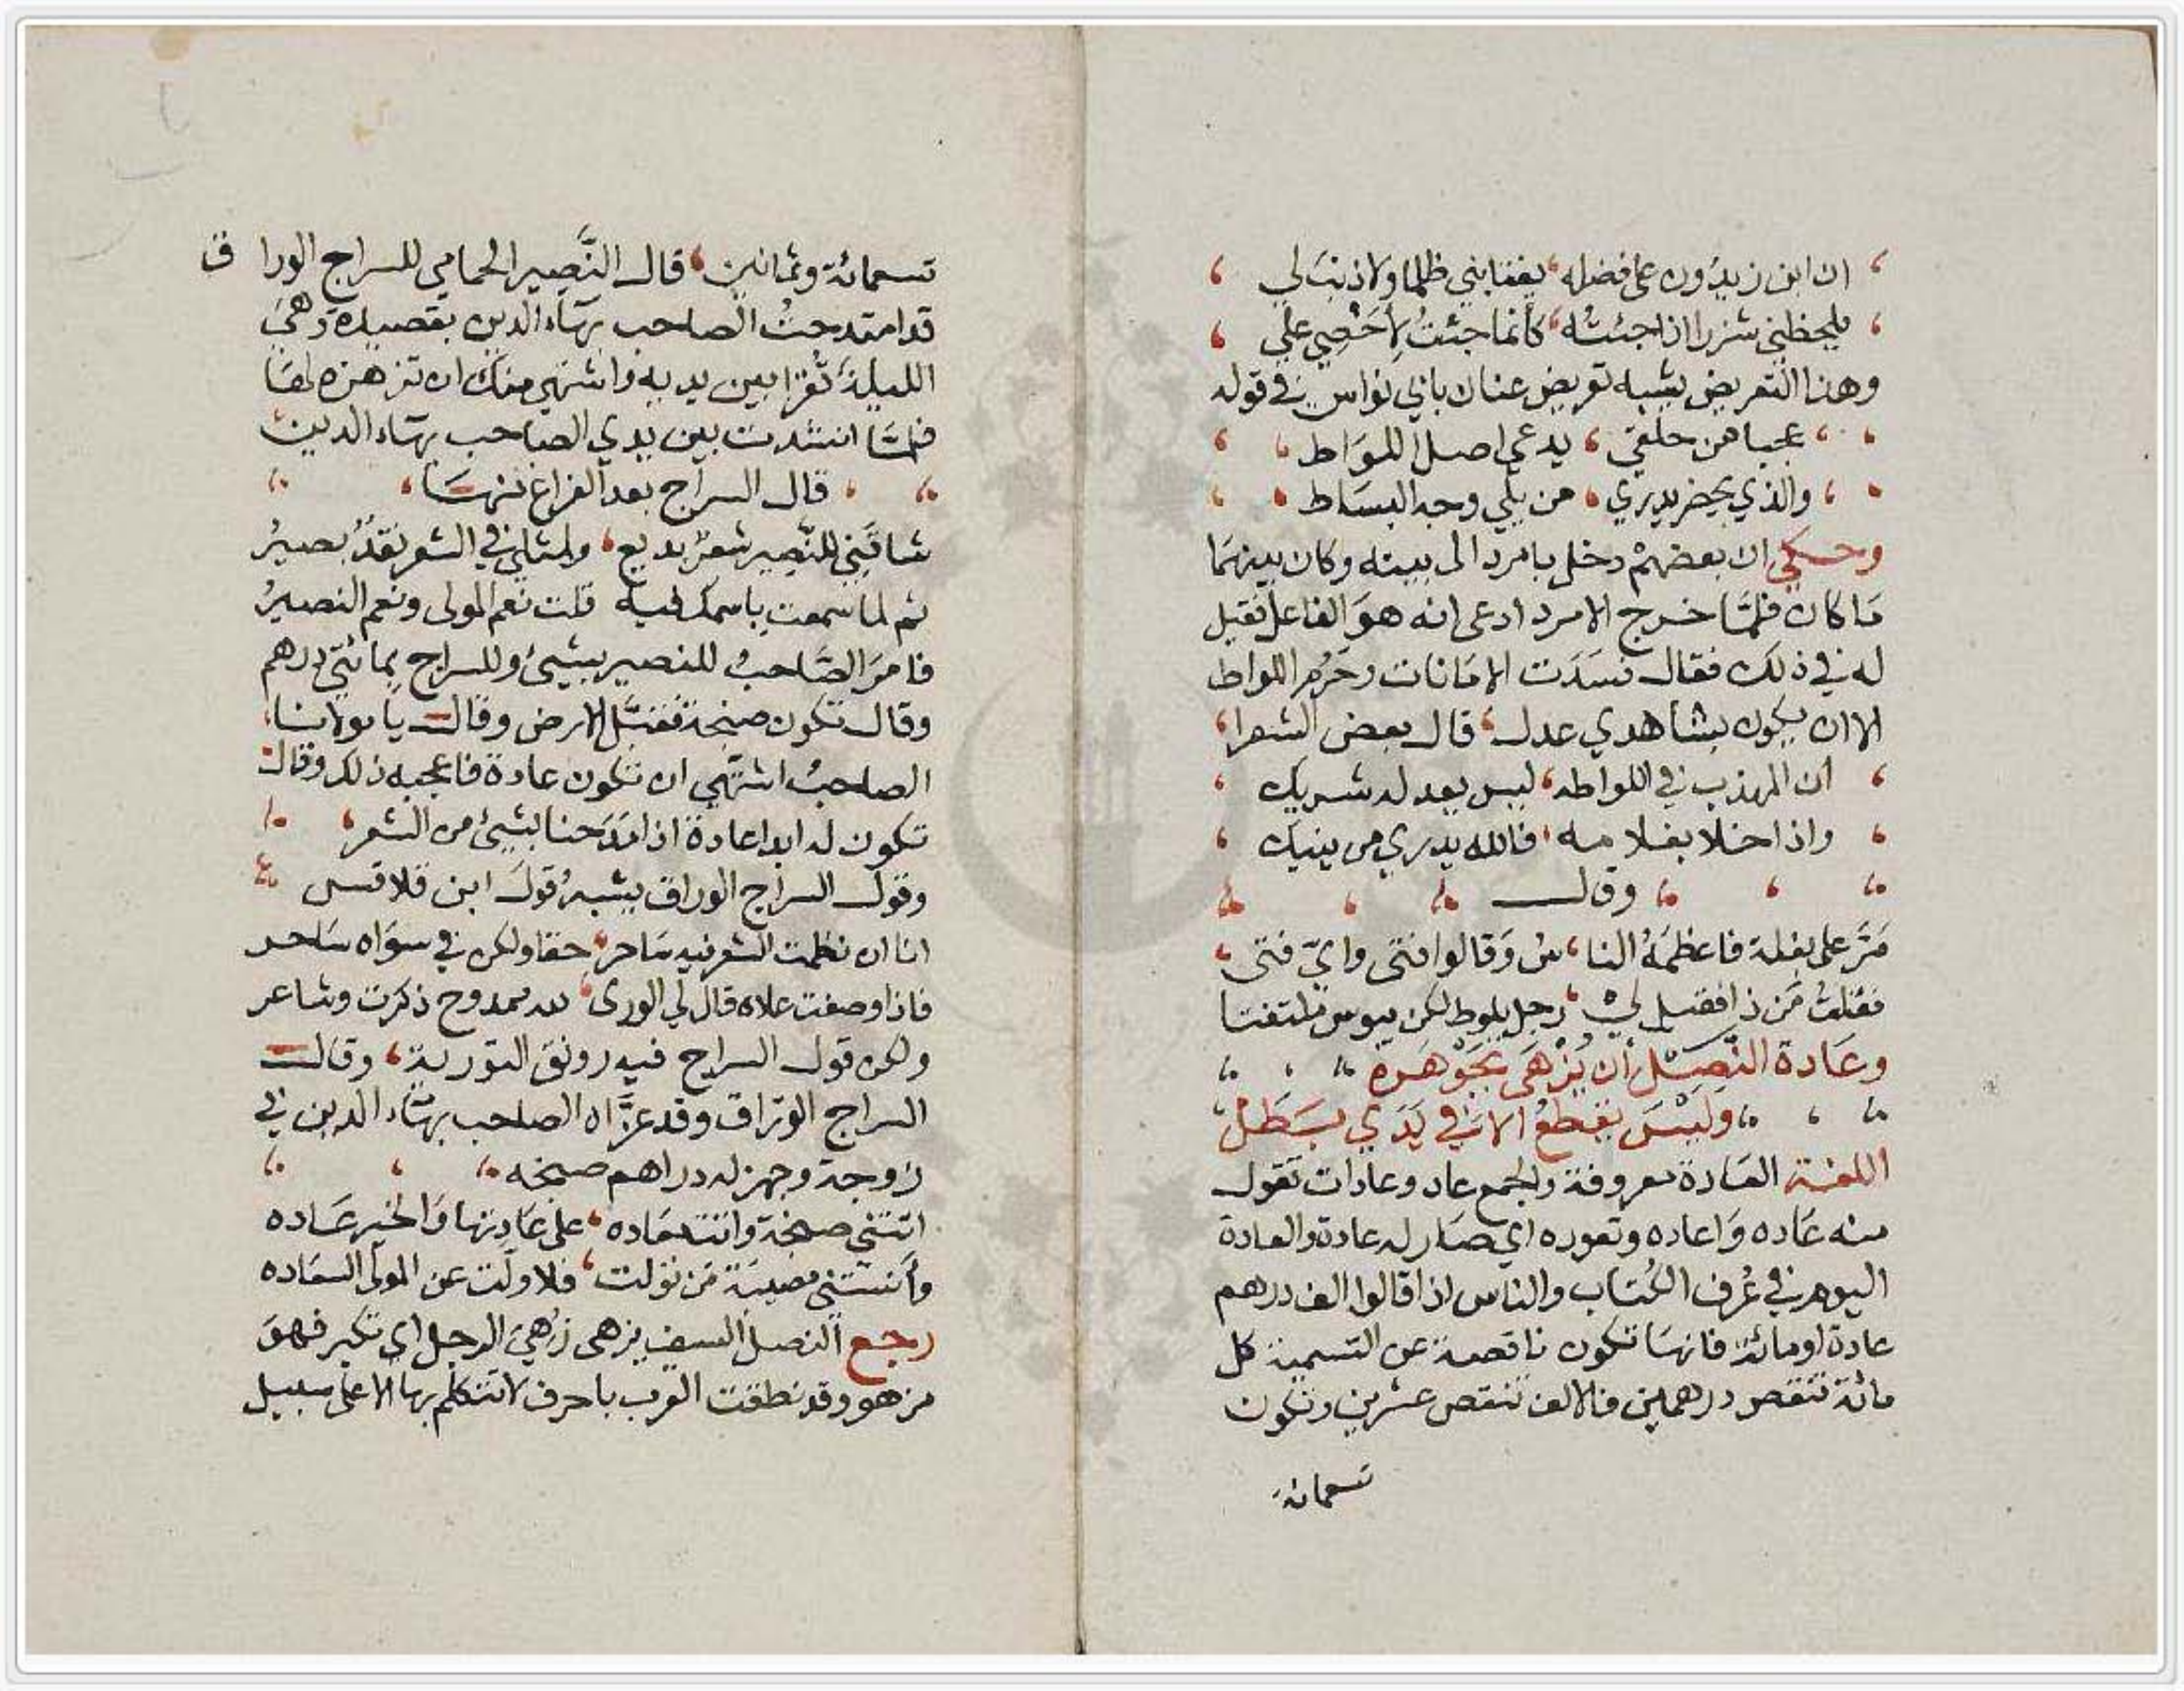 ان ابن زيدون على فضله ، يغتابني ظلما ولا ذنب لي
يلحظني شزرا اذا جئته ، كأنما جئتُ لأخصي علي
وهذا التعريض يشبه تعريض عنان بابي نواس في قوله
عجبا من حلقي ، يدعي اصل اللواط
والذي يحضر يدري ، من يلي وجه البساط
وحكي ان بعضهم دخل بامرد الى بيته وكان بينهما
ما كان فلمّا خرج الامرد ادعى انه هو الفاعل فقيل
له في ذلك فقال فسدت الامانات وحرم اللواط
الا ان يكون بشاهدي عدل ، قال بعض الشعرا
ان المهذب في اللواطه ، ليس يعدله شريك
واذا خلا بغلامه ، فالله يدري من ينيك
وقال
مَرَّ على بغلة فاعظمهُ النا ، سُ وَقالوا فتى وايّ فتى
فقلتُ مَن ذا فقيل لي ، رجل يلوط لكن يبوس ملتفتا
وعَادة النَّصل أن يُزْهَى بجَوْهَره
وَليْسَ يقطعُ الا في يَدَي بَطَل
اللغة العَادة معروفة والجمع عاد وعادات تقول
منه عَاده وَاعاده وتعوده اي صَار له عادة والعادة
اليوم في عُرف الكُتاب والناس اذا قالوا الف درهم
عادة او مائة فانها تكون ناقصة عن التسمية كل
مائة تنقص درهمين فالالف تنقص عشرين وتكون
تسعمائة
تسعمائة وثمانين ، قال النَّصير الحمامي للسراج الوراق
قد امتدحتُ الصاحب بهاء الدين بقصيدة وهي
الليلة تُقرا بين يديه واشتهي منك ان تزهزه لها
فلمّا انشدت بين يدي الصاحب بهاء الدين
قال السراج بعد الفراغ منها
شاقَني للنَّصير شعرٌ بديع ، ولمثلي في الشعر نقدٌ بصيرُ
ثم لما سمعت باسمك فيه قلت نعم المولى ونعم النصيرُ
فامرَ الصّاحبُ للنصير بشيئ وللسراج بمائتي درهم
وقال تكون صنجة فقبَّل الارض وقال يا مولانا
الصاحبُ اشتهي ان تكون عادة فاعجبه ذلك وقال
تكون له ابدا عادة اذا امتدحنا بشيئ من الشعر
وقول السراج الوراق يشبهُ قول ابن قلاقس
انا ان نظمت الشعر فيه ساحر ، حقا ولكن في سواه ساحر
فاذا وصفت علاه قال لي الورى ، لله ممدوح ذكرت وشاعر
ولكن قول السراج فيه رونق التورية ، وقال
السراج الورّاق وقد عزّاه الصاحب بهاء الدين في
زوجة وجهز له دراهم صنجه
اتتني صنجة واتت معَاده ، على عَادتها وَالخير عَاده
وأنستني مصيبَة مَن تولت ، فلا ولّت عن المولى السعَاده
رجع النصل السيف يزهى زُهيَ الرجل اي تكبر فهو
مزهو وقد نطقت العرب باحرف لا تتكلم بها الا على سبيل